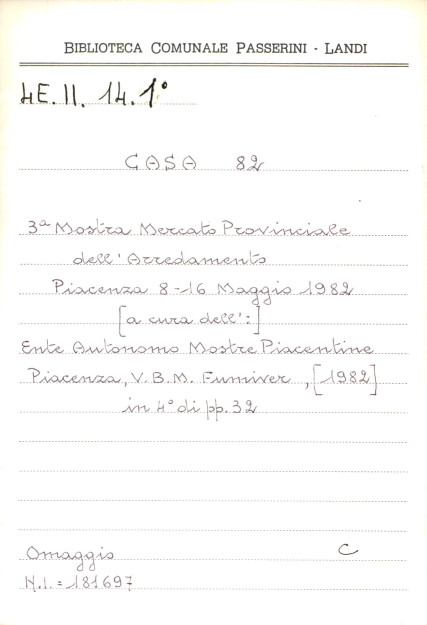 BIBLIOTECA COMUNALE PASSERINI - LANDI
4E. II. 14. 1°
CASA 82
3ª Mostra Mercato Provinciale
dell'Arredamento
Piacenza 8-16 Maggio 1982
[a cura dell':]
Ente Autonomo Mostre Piacentine
Piacenza, V.B.M. Fumiver, [1982]
in 4° di pp. 32
Omaggio C
N.I. = 181697